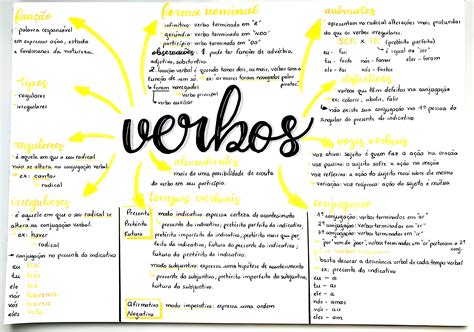 função
palavra responsável
em expressar ação, estado
e fenômenos da natureza.
tipos
regulares
irregulares
regulares
é aquele em que o seu radical
não se altera na conjugação verbal.
ex: cantar
radical
irregulares
é aquele em que o seu radical se
altera na conjugação verbal.
ex: haver
radical
conjugação no presente do indicativo
eu
tu
ele
nós havemos
vós haveis
eles
forma nominal
infinitivo: verbo terminado em "r"
gerúndio: verbo terminado em "ndo"
particípio: verbo terminado em "do"
observações: 1. pode ter função de advérbio,
adjetivo, substantivo.
2. locução verbal é quando temos dois, ou mais, verbos com a
função de um só. ex: os mares foram navegados pelos
foram navegados
verbo principal
verbo auxiliar
verbos
abundantes
mais de uma possibilidade de escrita
do verbo em seu particípio.
tempos verbais
Presente
Pretérito
Futuro
modo indicativo: expressa certeza do acontecimento
presente do indicativo; pretérito perfeito do indicativo;
pretérito imperfeito do indicativo; pretérito mais que per
feito do indicativo; futuro do presente do indicativo;
futuro do pretérito do indicativo.
modo subjuntivo: expressa uma hipótese de acontecimento
presente do subjuntivo; pretérito imperfeito do
subjuntivo; futuro do subjuntivo.
Afirmativo
Negativo
modo imperativo: expressa uma ordem
anômalos
apresentam no radical alterações mais profundas
do que os verbos irregulares.
SER x IR (pretérito perfeito)
eu - fui
tu - foste
ele - foi
nós - fomos
vós - fostes
eles - foram
defectivos
verbos que têm defeitos na conjugação
ex: colorir, abolir, falir
não existe sua conjugação na 1ª pessoa do
singular do presente do indicativo.
vozes verbais
voz ativa: sujeito é quem faz a ação na oração
voz passiva: o sujeito sofre a ação na oração
voz reflexiva: ação do sujeito é ele mesmo
variação: voz recíproca: ação do sujeito é mútua
conjugações
1ª conjugação: verbos terminados em "ar"
2ª conjugação: verbos terminados em "er"
3ª conjugação: verbos terminados em "ir"
basta decorar a desinência verbal de cada tempo verbal
ex: presente do indicativo
eu - o
tu - as
ele - a
nós - amos
vós - ais
eles - am